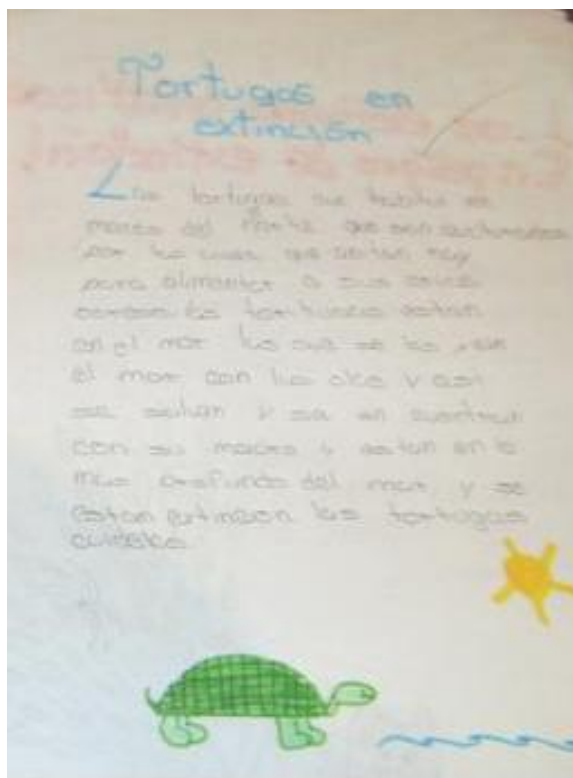 Tortugas en
extinción
Las tortugas que habitan en
mares del Norte que son capturadas
por las aves que
para alimentar a sus crias
las tortugas estan
en el mar las que se las
el mar con las olas y asi
se saltan y se en cuentran
con su madre y estan en lo
mas profundo del mar y se
estan extincion las tortugas